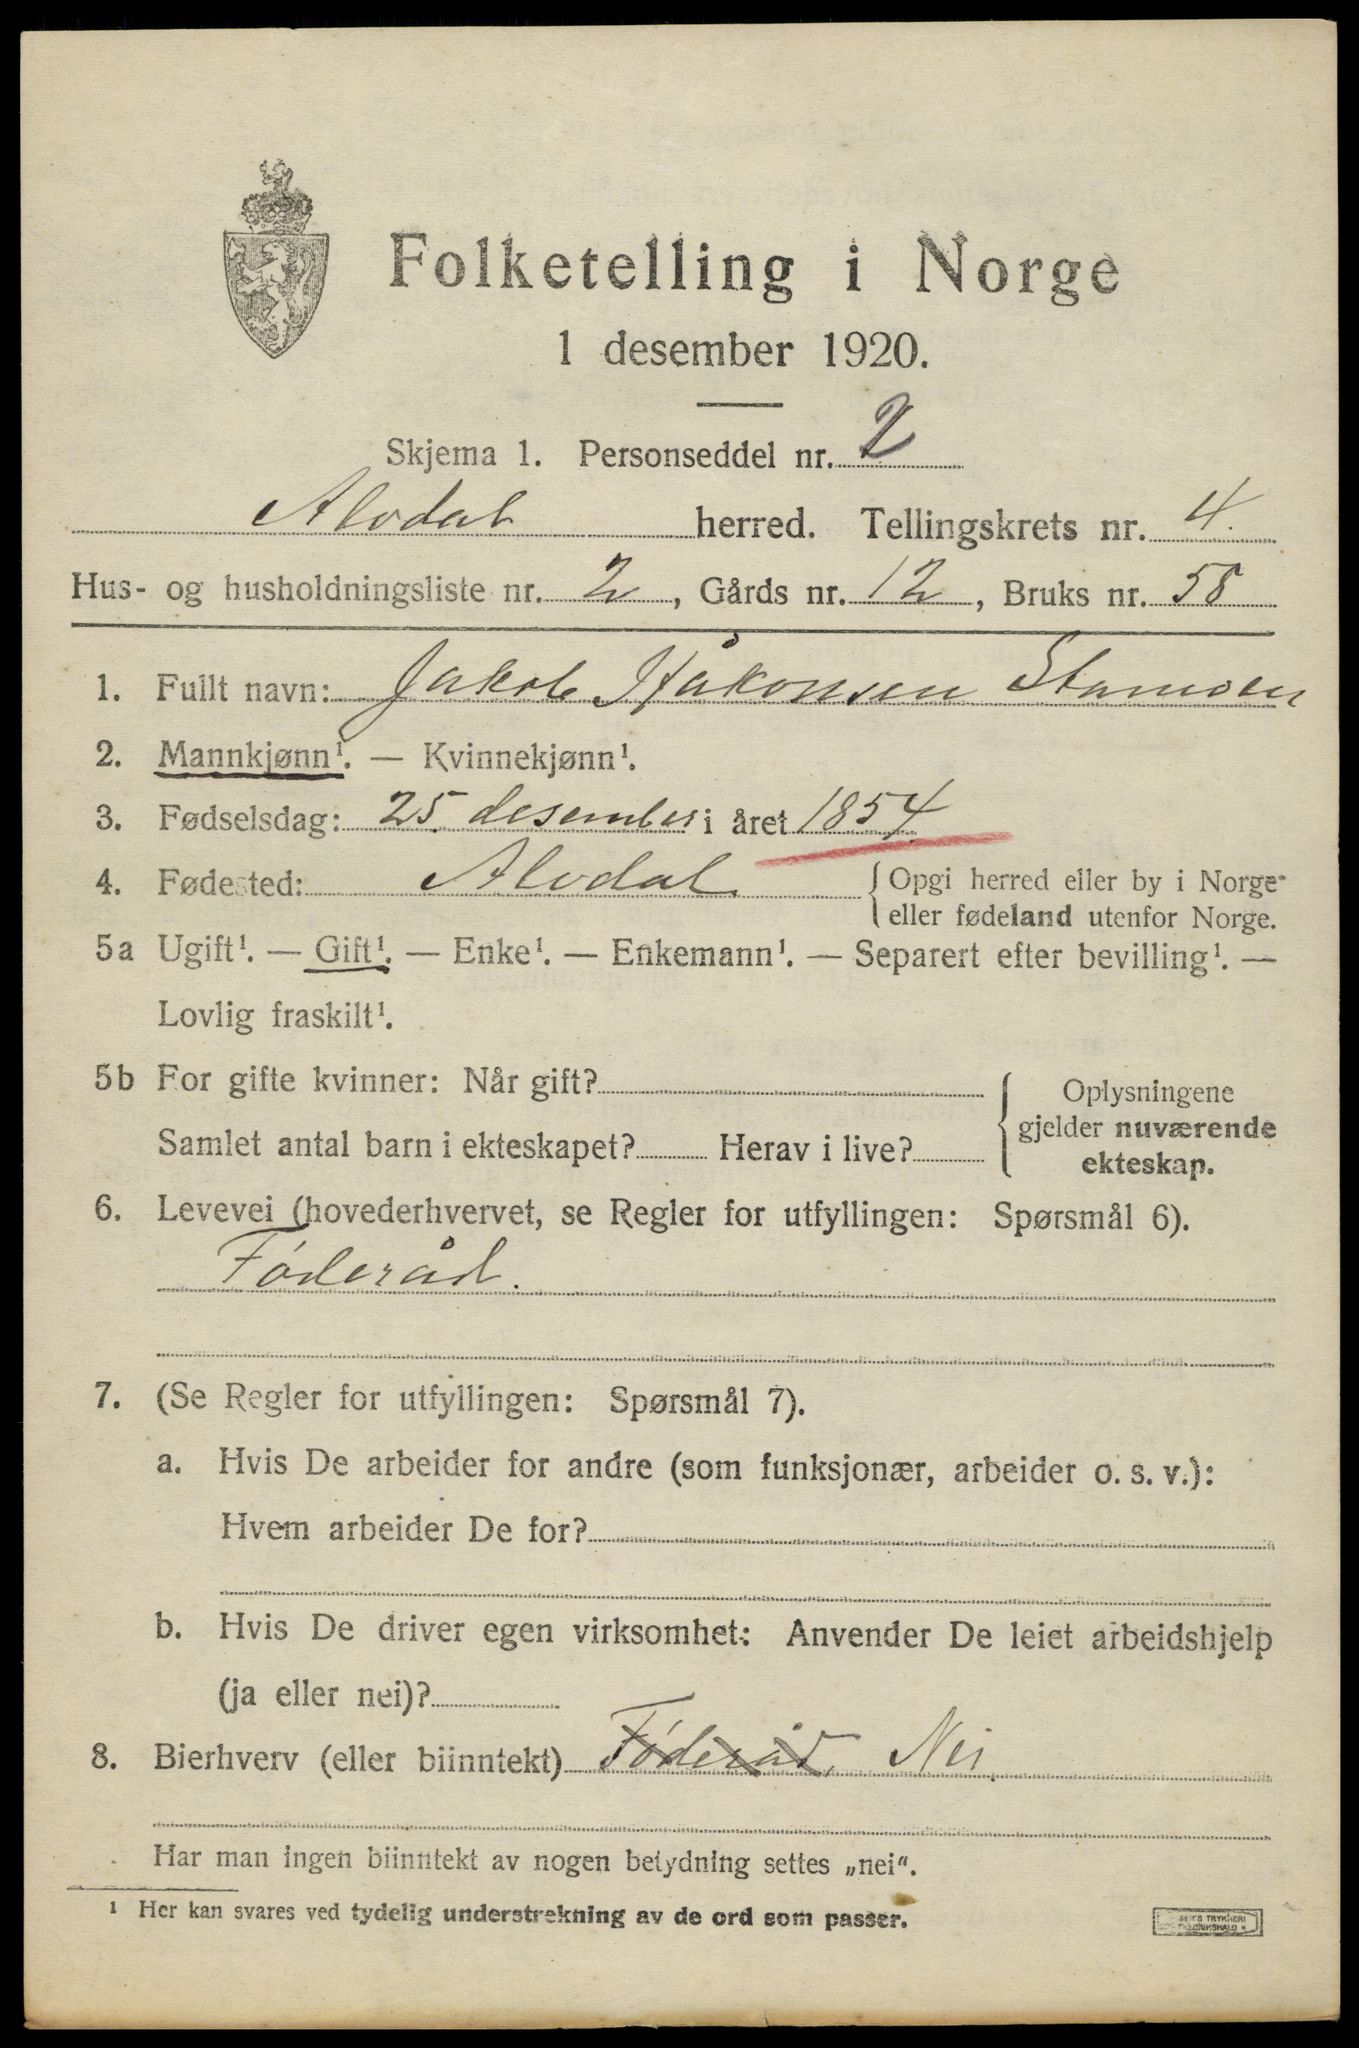 Folketelling i Norge
1 desember 1920.
Skjema 1. Personseddel nr. 2
Alvdal herred. Tellingskrets nr. 4.
Hus- og husholdningsliste nr. 2, Gårds nr. 12, Bruks nr. 58
1. Fullt navn: Jakob Håkonsen Stamoen
2. Mannkjønn¹. — Kvinnekjønn¹.
3. Fødselsdag: 25 desember i året 1854
4. Fødested: Alvdal {Opgi herred eller by i Norge
eller fødeland utenfor Norge.
5a Ugift¹. — Gift¹. — Enke¹. — Enkemann¹. — Separert efter bevilling¹. —
Lovlig fraskilt¹.
5b For gifte kvinner: Når gift?
Samlet antal barn i ekteskapet? Herav i live?
Oplysningene
gjelder nuværende
ekteskap.
6. Levevei (hovederhvervet, se Regler for utfyllingen: Spørsmål 6).
Føderåd.
7. (Se Regler for utfyllingen: Spørsmål 7).
a. Hvis De arbeider for andre (som funksjonær, arbeider o. s. v.):
Hvem arbeider De for?
b. Hvis De driver egen virksomhet: Anvender De leiet arbeidshjelp
(ja eller nei)?
8. Bierhverv (eller biinntekt) Føderåd, Nei.
Har man ingen biinntekt av nogen betydning settes „nei“.
¹ Her kan svares ved tydelig understrekning av de ord som passer.
TRYKKERI
FREDRIKSHALD